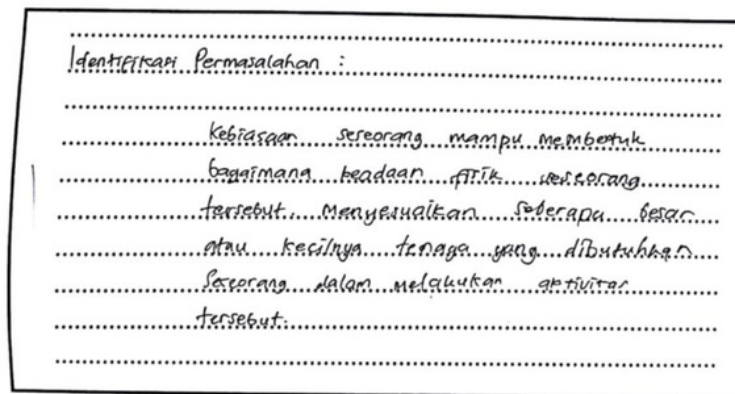 Identifikasi Permasalahan :
Kebiasaan seseorang mampu membentuk
bagaimana keadaan fisik seseorang
tersebut. Menyesuaikan seberapa besar
atau kecilnya tenaga yang dibutuhkan
Seseorang dalam melakukan aktivitas
tersebut.